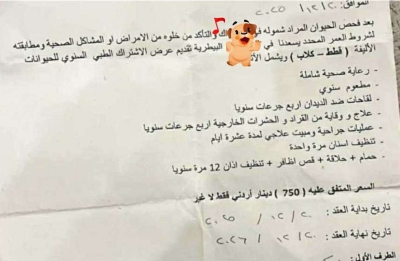 ٢٠٢٥
بعد فحص الحيوان المراد شموله والتأكد من خلوه من الامراض او المشاكل الصحية ومطابقته
لشروط العمر المحدد يسعدنا في البيطرية تقديم عرض الاشتراك الطبي للحيوانات
الأليفة ( قطط – كلاب ) ويشمل
- رعاية صحية شاملة
- مطعوم سنوي
- لقاحات ضد الديدان اربع جرعات سنويا
- علاج و وقاية من القراد و الحشرات الخارجية اربع جرعات سنويا
- عمليات جراحية ومبيت علاجي لمدة عشرة ايام
- تنظيف اسنان مرة واحدة
- حمام + حلاقة + قص اظافر + تنظيف اذان 12 مرة سنويا
السعر المتفق عليه ( 750 ) دينار أردني فقط لا غير
تاريخ بداية العقد : ٢٠ / ١٢ / ٢٠٢٥
تاريخ نهاية العقد : ٢٠ / ١٢ / ٢٠٢٦
الطرف الأول: